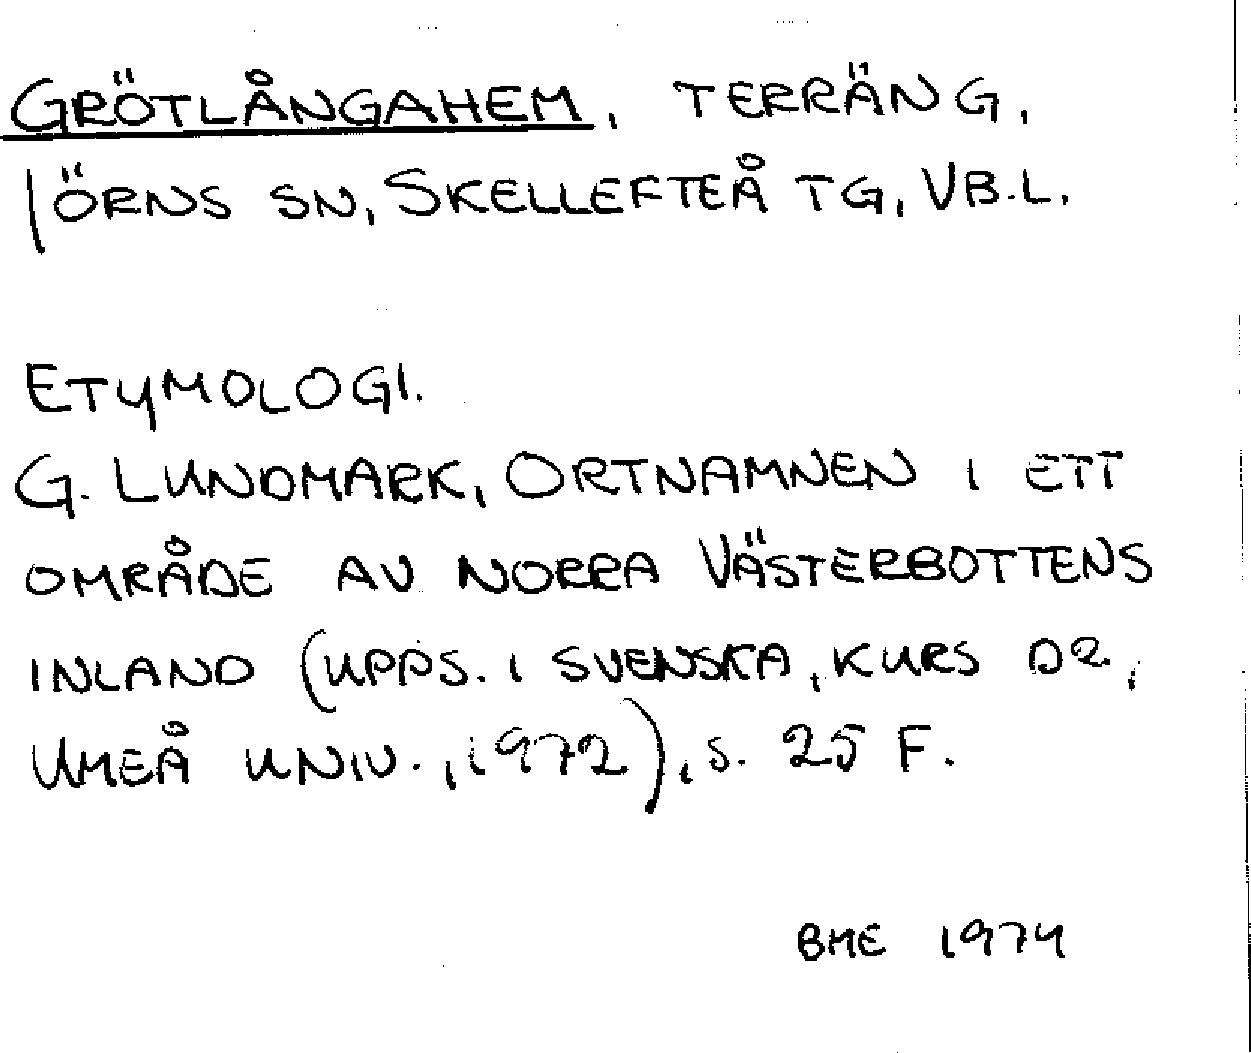 GRÖTLÅNGAHEM, TERRÄNG,
JÖRNS SN, SKELLEFTEÅ TG, VB.L.
ETYMOLOGI.
G. LUNDMARK, ORTNAMNEN I ETT
OMRÅDE AV NORRA VÄSTERBOTTENS
INLAND (UPPS. I SVENSKA, KURS D2,
UMEÅ UNIV., 1972), S. 25 F.
BME 1974